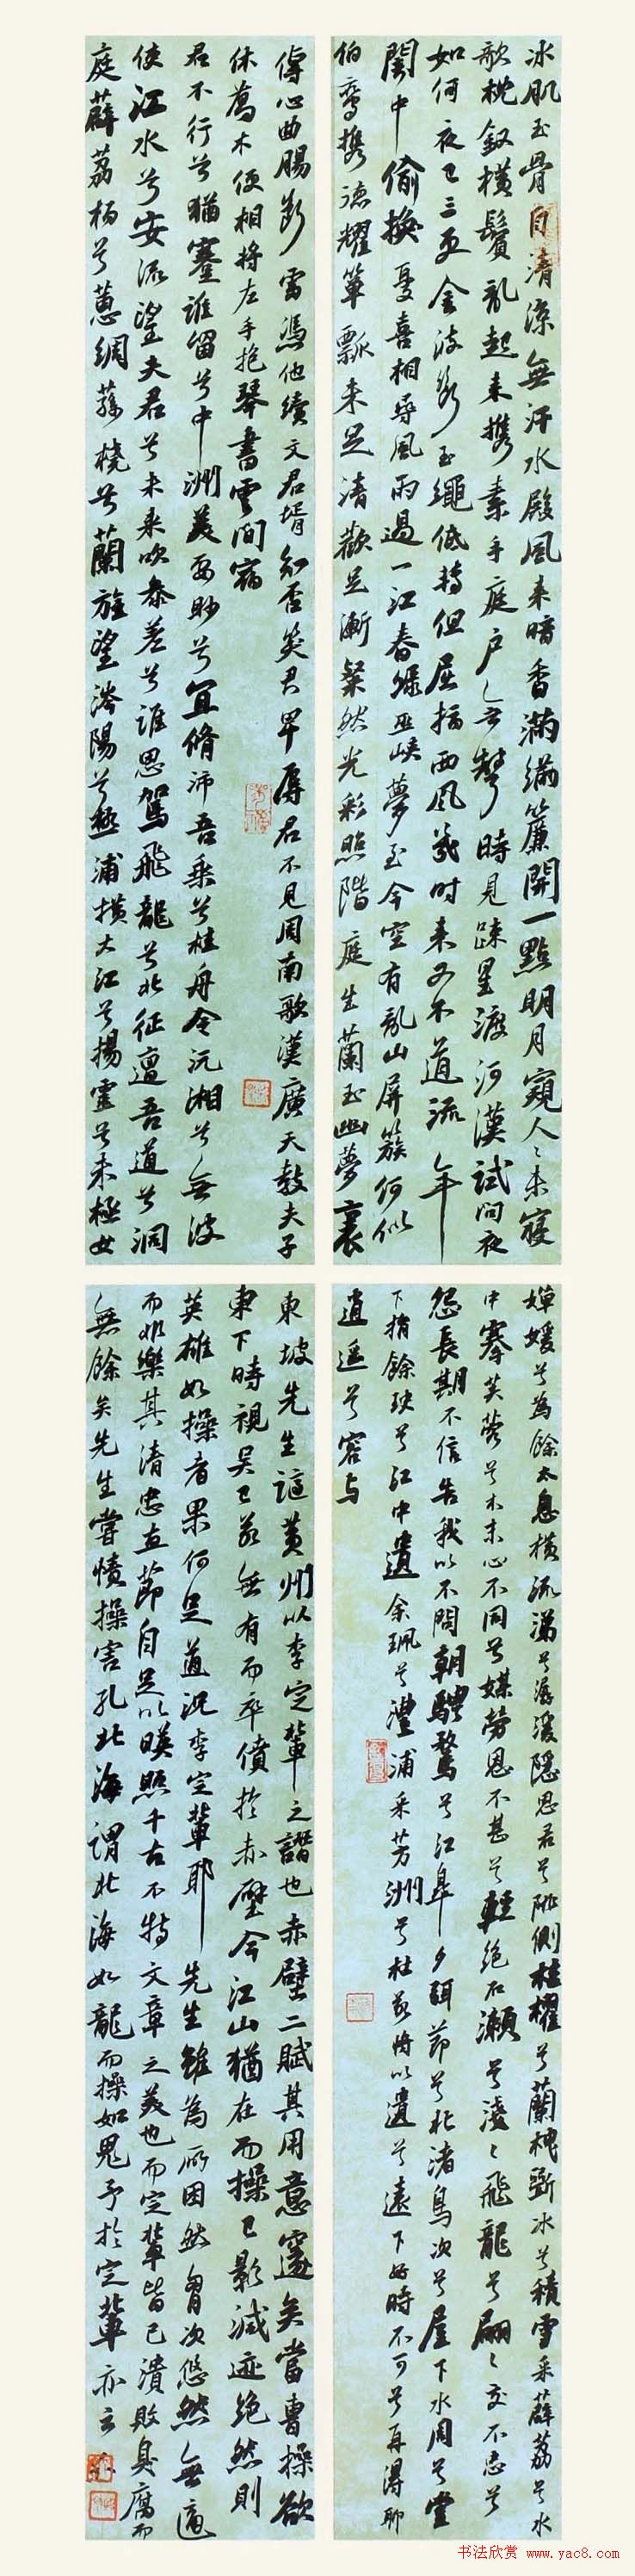 冰肌玉骨自清涼無汗水殿風來暗香滿繡簾開一點明月窺人〻未寢
欹枕釵橫鬢亂起來攜素手庭戶〻無聲時見疎星渡河漢試問夜
如何夜已三更金波淡玉繩低轉但屈指西風幾時來又不道流年
闇中偷換憂喜相尋風雨過一江春綠巫峽夢至今空有亂山屏簇何似
伯鸞攜德耀簞瓢未足清歡足漸粲然光彩照階庭生蘭玉幽夢裏
傳心曲腸斷處憑他續文君壻知否笑君卑辱君不見周南歌漢廣天教夫子
休喬木便相將左手抱琴書雲間宿
君不行兮猶蹇誰留兮中洲美要眇兮宜脩沛吾乘兮桂舟令沅湘兮無波
使江水兮安流望夫君兮未來吹參差兮誰思駕飛龍兮北征邅吾道兮洞
庭薜荔柏兮蕙綢蓀橈兮蘭旌望涔陽兮極浦橫大江兮揚靈兮未極女
嬋媛兮為餘太息橫流涕兮潺湲隱思君兮陫側桂櫂兮蘭枻斲冰兮積雪采薜荔兮水
中搴芙蓉兮木末心不同兮媒勞恩不甚兮輕絕石瀨兮淺〻飛龍兮翩〻交不忠兮
怨長期不信告我以不閒朝騁騖兮江皋夕弭節兮北渚鳥次兮屋下水周兮堂
下捐餘玦兮江中遺余珮兮澧浦采芳洲兮杜若將以遺兮遠下女時不可兮再得聊
逍遥兮容与
東坡先生謫黃州以李定輩之譖也赤壁二賦其用意邃矣當曹操欲
東下時視吳已若無有而卒僨於赤壁今江山猶在而操已影滅迹絕然則
英雄如操者果何足道況李定輩耶先生雖為所困然胷次悠然無適
而非樂其清忠直節自足以暎照千古不特文章之美也而定輩皆已潰敗臭腐而
無餘矣先生嘗憤操害孔北海謂北海如龍而操如鬼予於定輩亦云
书法欣赏 www.yac8.com